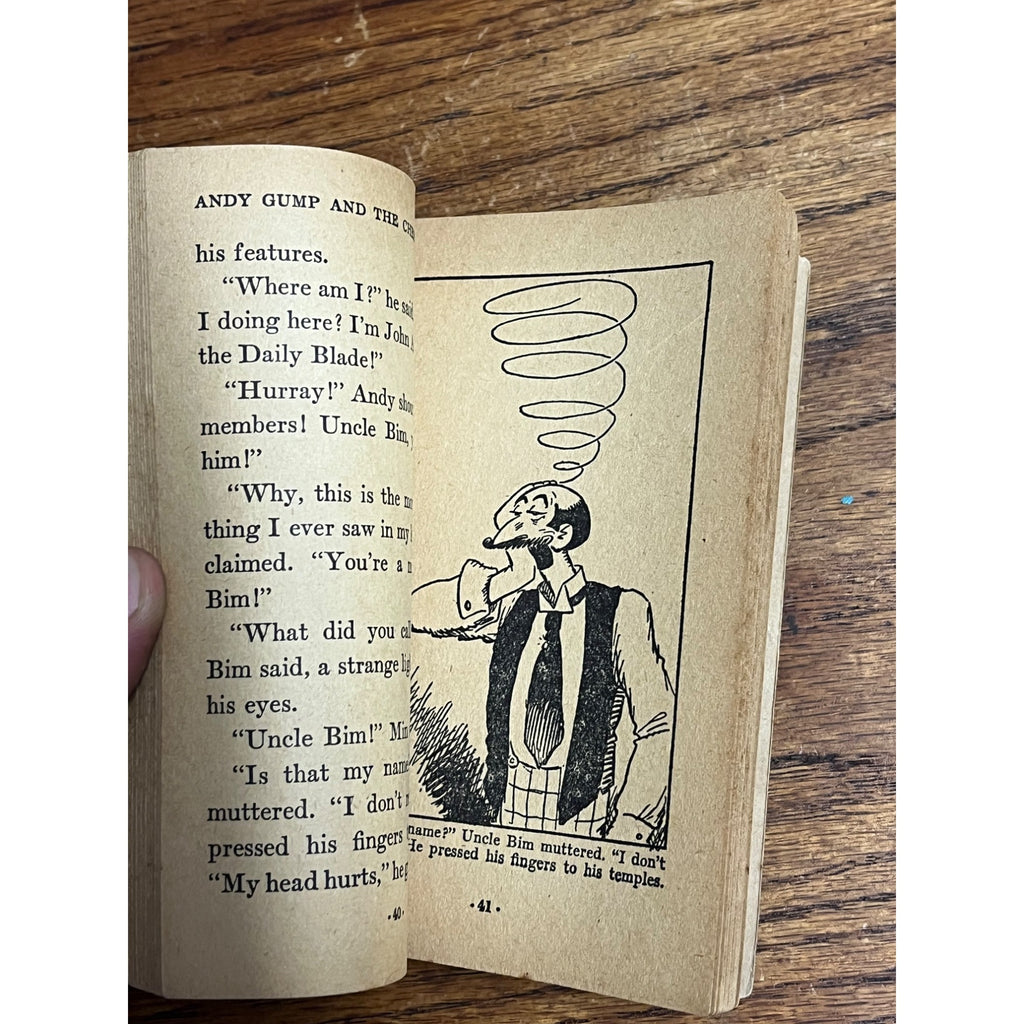 ANDY GUMP AND THE
his features.
"Where am I?" he
I doing here? I'm John
the Daily Blade!"
"Hurray!" Andy
members! Uncle Bim,
him!"
"Why, this is the
thing I ever saw in my
claimed. "You're a
Bim!"
"What did you
Bim said, a strange
his eyes.
"Uncle Bim!"
"Is that my
muttered. "I don't
pressed his fingers
"My head hurts," he
·40·
name?" Uncle Bim muttered. "I don't
He pressed his fingers to his temples.
·41·